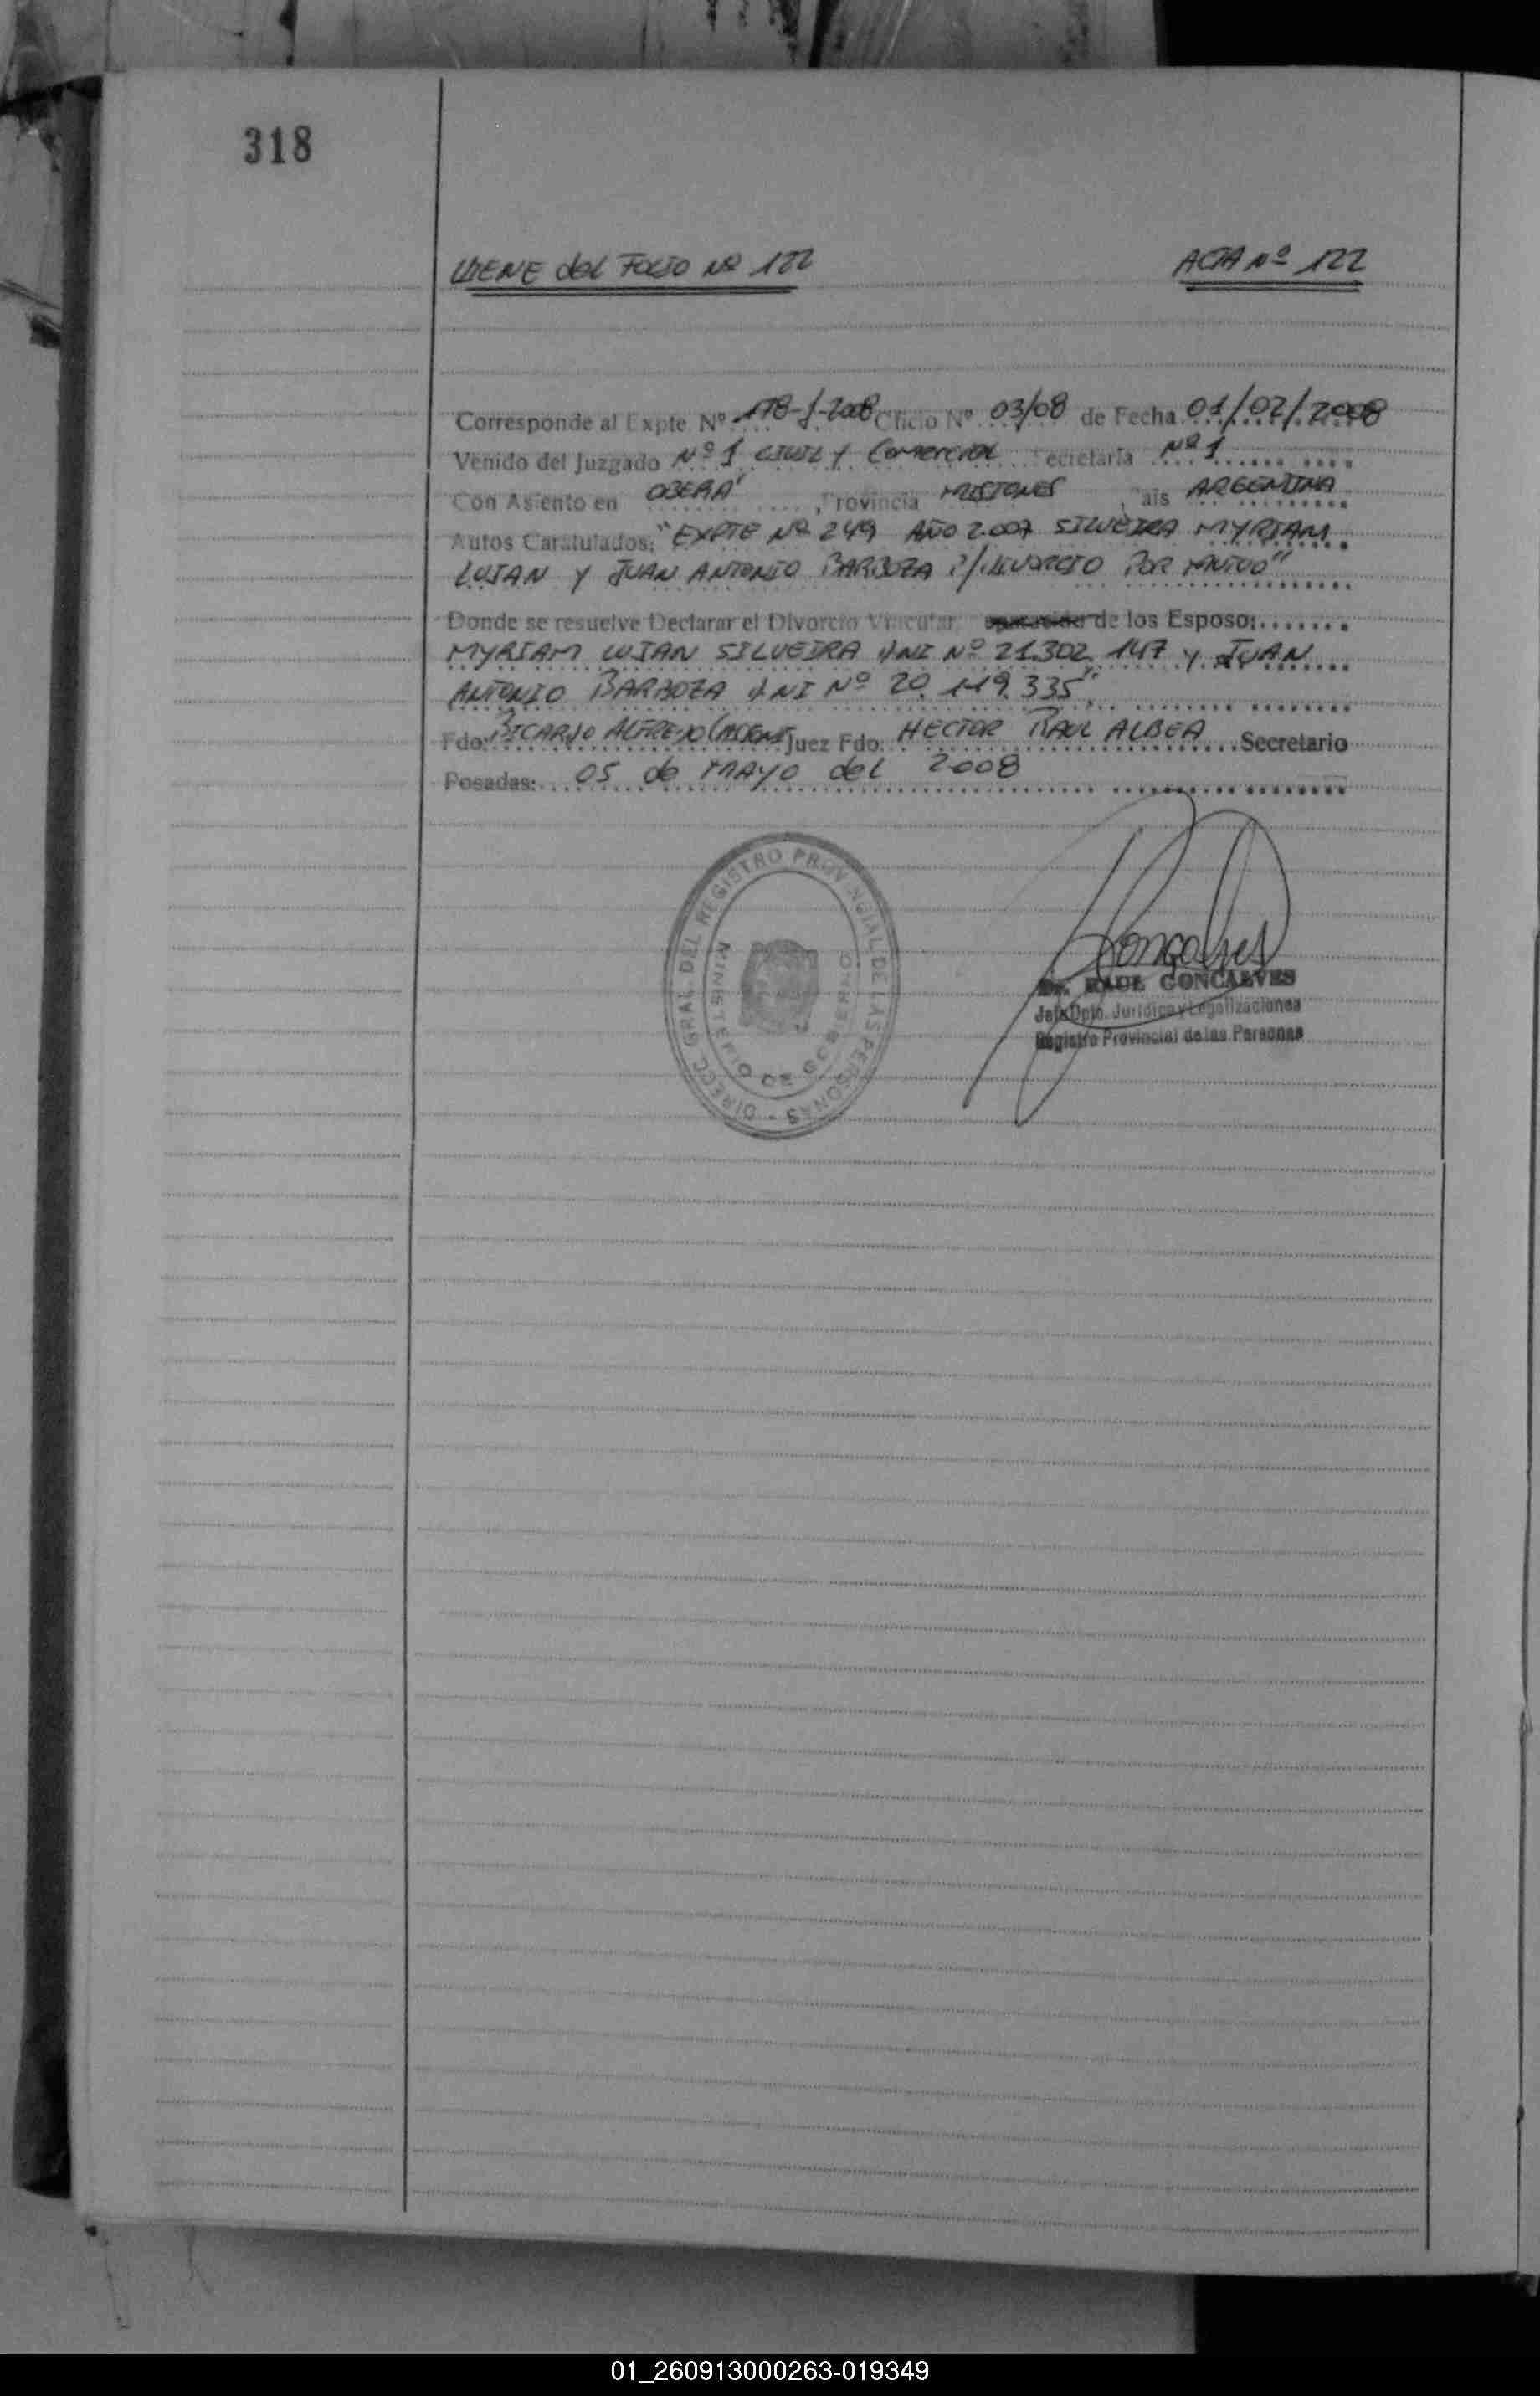 318
VIENE del FOLIO Nº 122
ACTA Nº 122
Corresponde al Expte. Nº 178-J-2008 Oficio Nº 03/08 de Fecha 01/02/2008
Venido del Juzgado Nº 1 CIVIL Y Comercial Secretaria Nº 1
Con Asiento en OBERA' , Provincia MISIONES , Pais ARGENTINA
Autos Caratulados: "EXPTE Nº 249 AÑO 2007 SILVEIRA MYRIAM
LUJAN Y JUAN ANTONIO BARBOZA S/DIVORCIO POR MUTUO"
Donde se resuelve Declarar el Divorcio Vincular de los Esposo:
MYRIAM LUJAN SILVEIRA DNI Nº 21.302.147 y JUAN
ANTONIO BARBOZA DNI Nº 20.119.335"
Fdo: RICARDO ALFREDO Juez Fdo: HECTOR RAUL ALBEA Secretario
Posadas: 05 de MAYO del 2008
DIRECC. GRAL. DEL REGISTRO PROVINCIAL DE LAS PERSONAS -
MINISTERIO DE GOBIERNO
Goncalves
Dr. RAUL GONCALVES
Jefe Dpto. Juridico y Legalizaciones
Registro Provincial de las Personas
01_260913000263-019349